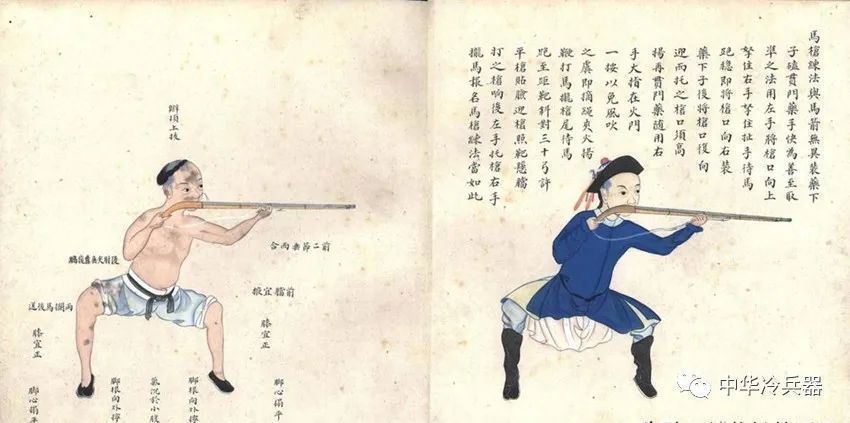 馬槍練法與馬箭無異裝藥下
子磕貫門藥手快為善至取
準之法用左手將槍口向上
拏住右手拏住扯手待馬
跑穩即將槍口向右裝
藥下子後將槍口復向
迎而托之槍口須高
揚再貫門藥隨用右
手大指在火門
一按以免風吹
之虞即摘繩夾火揚
鞭打馬攏槍尾待馬
跑至距靶斜對三十弓許
平槍貼臉迎槍照靶懸
打之槍响後左手托槍右手
攏馬報名馬槍練法當如此
辮頂上拔
前二節兩合
前宜
膝宜正
脚心搨平
脚根向外擰
氣沉於小腹
脚根向外擰
後馬送
膝宜正
脚心搨平
中华冷兵器